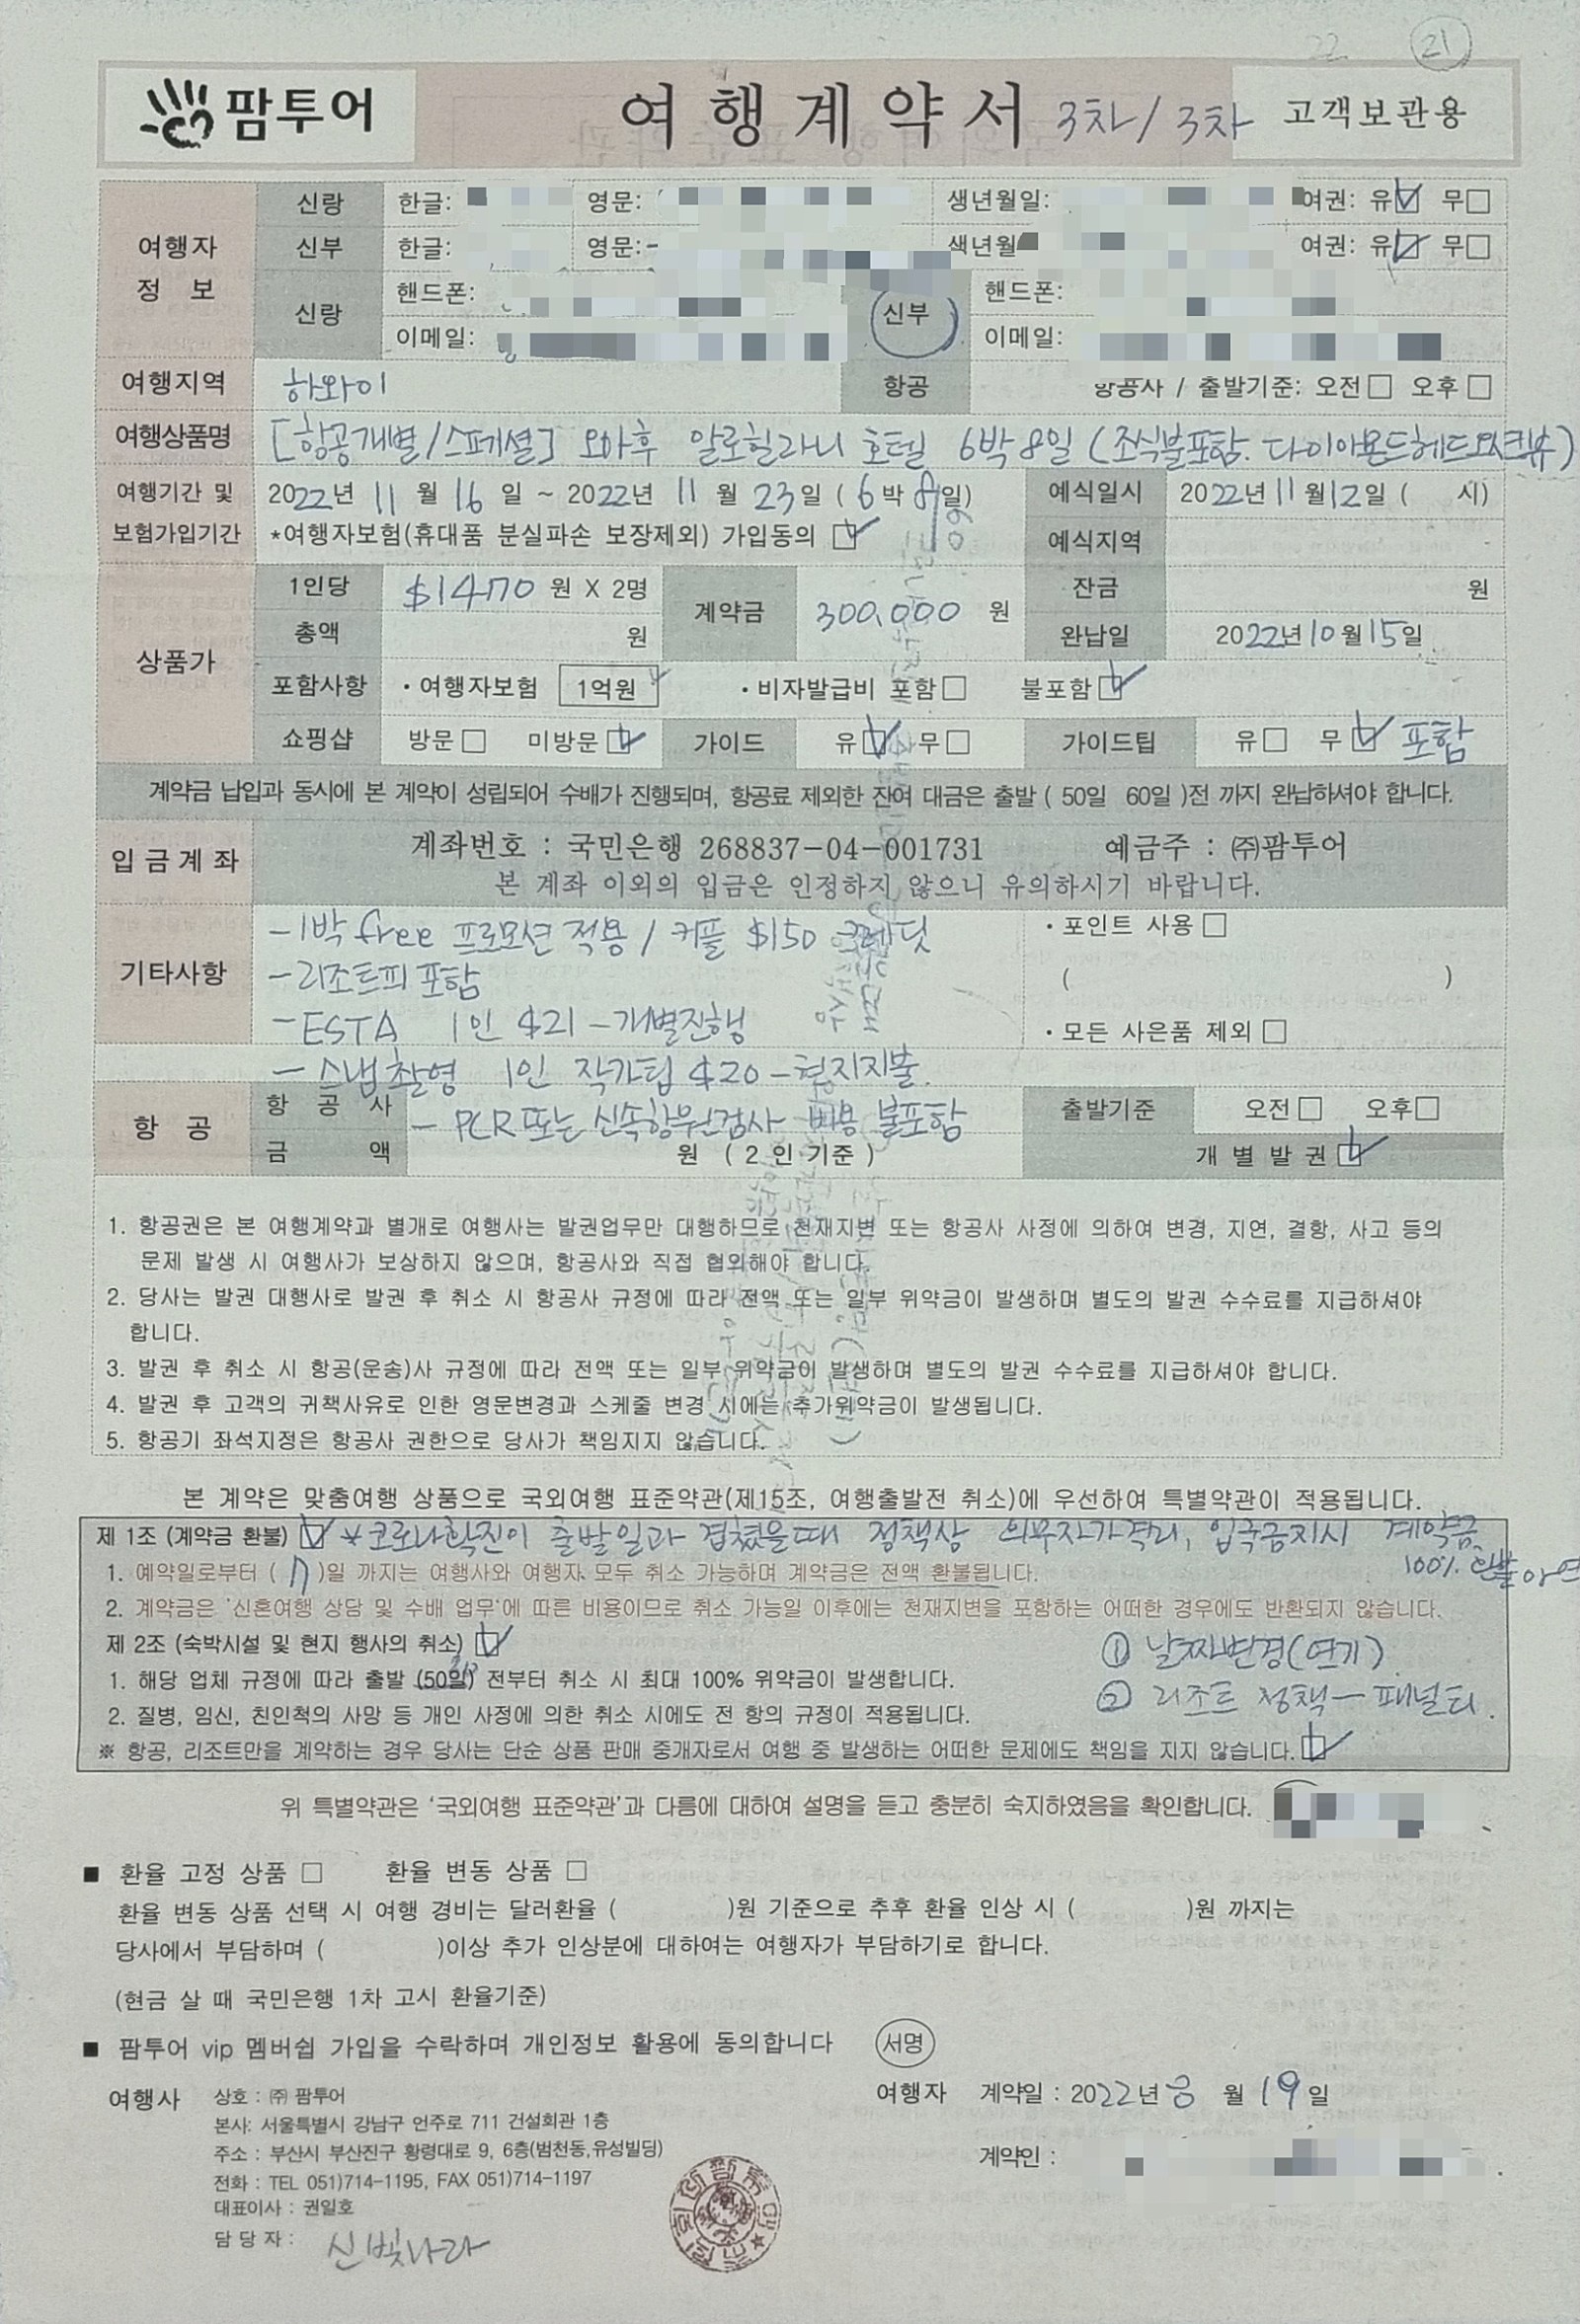 21
팜투어
여행계약서 3차/3차 고객보관용
여행자 정보
신랑 한글: 영문: 생년월일: 여권: 유☑ 무□
신부 한글: 영문: 생년월 여권: 유☑ 무□
신랑 핸드폰: 신부 핸드폰:
이메일: 이메일:
여행지역 하와이 항공 항공사 / 출발기준: 오전□ 오후□
여행상품명 [항공개별/스페셜] 오아후 알로힐라니 호텔 6박8일 (조식불포함. 다이아몬드헤드오션뷰)
여행기간 및 2022년 11월 16일 ~ 2022년 11월 23일 (6박 8일) 예식일시 2022년 11월 12일 ( 시)
보험가입기간 *여행자보험(휴대품 분실파손 보장제외) 가입동의 ☑ 예식지역
상품가 1인당 $1470 원 X 2명 계약금 300,000 원 잔금 원
총액 원 완납일 2022년 10월 15일
포함사항 ·여행자보험 1억원 ·비자발급비 포함□ 불포함☑
쇼핑샵 방문□ 미방문☑ 가이드 유☑ 무□ 가이드팁 유□ 무☑ 포함
계약금 납입과 동시에 본 계약이 성립되어 수배가 진행되며, 항공료 제외한 잔여 대금은 출발 ( 50일 60일 )전 까지 완납하셔야 합니다.
입금계좌 계좌번호 : 국민은행 268837-04-001731 예금주 : ㈜팜투어
본 계좌 이외의 입금은 인정하지 않으니 유의하시기 바랍니다.
기타사항 -1박 free 프로모션 적용 / 커플 $150 크레딧 ·포인트 사용□
-리조트피 포함 ( )
-ESTA 1인 $21 -개별진행 ·모든 사은품 제외□
-스냅촬영 1인 작가팁 $20 -현지지불.
항공 항공사 -PCR 또는 신속항원검사 비용 불포함 출발기준 오전□ 오후□
금액 원 (2인기준) 개별발권☑
1. 항공권은 본 여행계약과 별개로 여행사는 발권업무만 대행하므로 천재지변 또는 항공사 사정에 의하여 변경, 지연, 결항, 사고 등의
문제 발생 시 여행사가 보상하지 않으며, 항공사와 직접 협의해야 합니다.
2. 당사는 발권 대행사로 발권 후 취소 시 항공사 규정에 따라 전액 또는 일부 위약금이 발생하며 별도의 발권 수수료를 지급하셔야
합니다.
3. 발권 후 취소 시 항공(운송)사 규정에 따라 전액 또는 일부 위약금이 발생하며 별도의 발권 수수료를 지급하셔야 합니다.
4. 발권 후 고객의 귀책사유로 인한 영문변경과 스케줄 변경 시에는 추가위약금이 발생됩니다.
5. 항공기 좌석지정은 항공사 권한으로 당사가 책임지지 않습니다.
본 계약은 맞춤여행 상품으로 국외여행 표준약관(제15조, 여행출발전 취소)에 우선하여 특별약관이 적용됩니다.
제 1조 (계약금 환불) ☑ *코로나확진이 출발일과 겹쳤을때 정책상 의무자가격리, 입국금지시 계약금
100% 환불
1. 예약일로부터 ( 7 )일 까지는 여행사와 여행자 모두 취소 가능하며 계약금은 전액 환불됩니다.
2. 계약금은 '신혼여행 상담 및 수배 업무'에 따른 비용이므로 취소 가능일 이후에는 천재지변을 포함하는 어떠한 경우에도 반환되지 않습니다.
제 2조 (숙박시설 및 현지 행사의 취소) ☑ ① 날짜변경(연기)
1. 해당 업체 규정에 따라 출발 (50일) 전부터 취소 시 최대 100% 위약금이 발생합니다. ② 리조트 정책-패널티.
2. 질병, 임신, 친인척의 사망 등 개인 사정에 의한 취소 시에도 전 항의 규정이 적용됩니다.
※ 항공, 리조트만을 계약하는 경우 당사는 단순 상품 판매 중개자로서 여행 중 발생하는 어떠한 문제에도 책임을 지지 않습니다. ☑
위 특별약관은 '국외여행 표준약관'과 다름에 대하여 설명을 듣고 충분히 숙지하였음을 확인합니다.
■ 환율 고정 상품 □ 환율 변동 상품 □
환율 변동 상품 선택 시 여행 경비는 달러환율 ( )원 기준으로 추후 환율 인상 시 ( )원 까지는
당사에서 부담하며 ( )이상 추가 인상분에 대하여는 여행자가 부담하기로 합니다.
(현금 살 때 국민은행 1차 고시 환율기준)
■ 팜투어 vip 멤버쉽 가입을 수락하며 개인정보 활용에 동의합니다 서명
여행사 상호 : ㈜ 팜투어 여행자 계약일 : 2022년 8월 19일
본사: 서울특별시 강남구 언주로 711 건설회관 1층
주소 : 부산시 부산진구 황령대로 9, 6층(범천동,유성빌딩) 계약인 :
전화 : TEL 051)714-1195, FAX 051)714-1197
대표이사 : 권일호
담당자 : 신빛나라